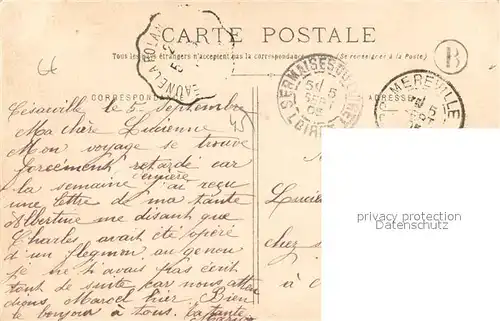 CARTE POSTALE
Tous les pays étrangers n'acceptent pas la correspondance (Se renseigner à la Poste)
B
BEAUNE-LA-ROLANDE
SERMAISES-DU-LOIRET
5
SEPT
05
LOIRET
MEREVILLE
CORRESPONDANCE
ADRESSE
Césarville le 5 Septembre
45
Ma chère Lucienne
Mon voyage se trouve
forcément retardé car
la semaine dernière j'ai reçu
une lettre de ma tante
Albertine me disant que
Charles avait été opéré
d'un flegmon au genou
je ne t'avais pas écrit
tout de suite car nous atten
dions Marcel hier. Bien
le bonjour à tous. ta tante
Lucie
chez
à
privacy protection
watermark